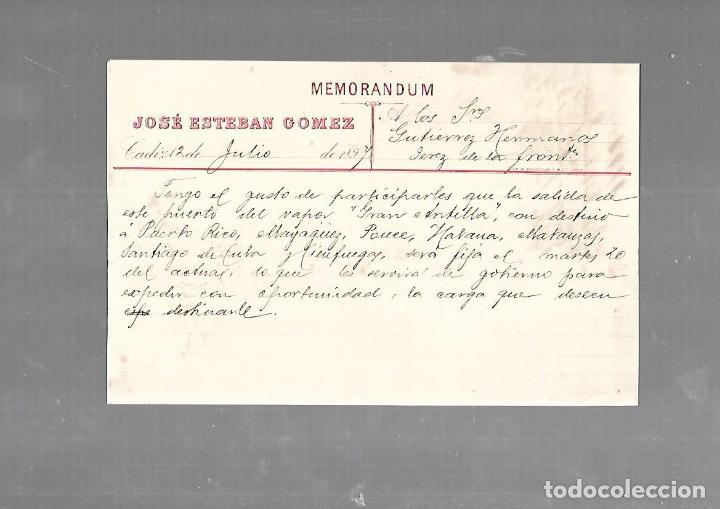 MEMORANDUM
JOSÉ ESTEBAN GOMEZ
Cadiz 12 de Julio de 1897
A los Sres
Gutierrez Hermanos
Jerez de la Frontra
Tengo el gusto de participarles que la salida de
este puerto del vapor "Gran Antilla", con destino
á Puerto Rico, Mayaguez, Ponce, Habana, Matanzas,
Santiago de Cuba y Cienfuegos, será fija el martes 20
del actual; lo que les servirá de gobierno para
expedir con oportunidad, la carga que deseen
destinarle.
todocoleccion.net